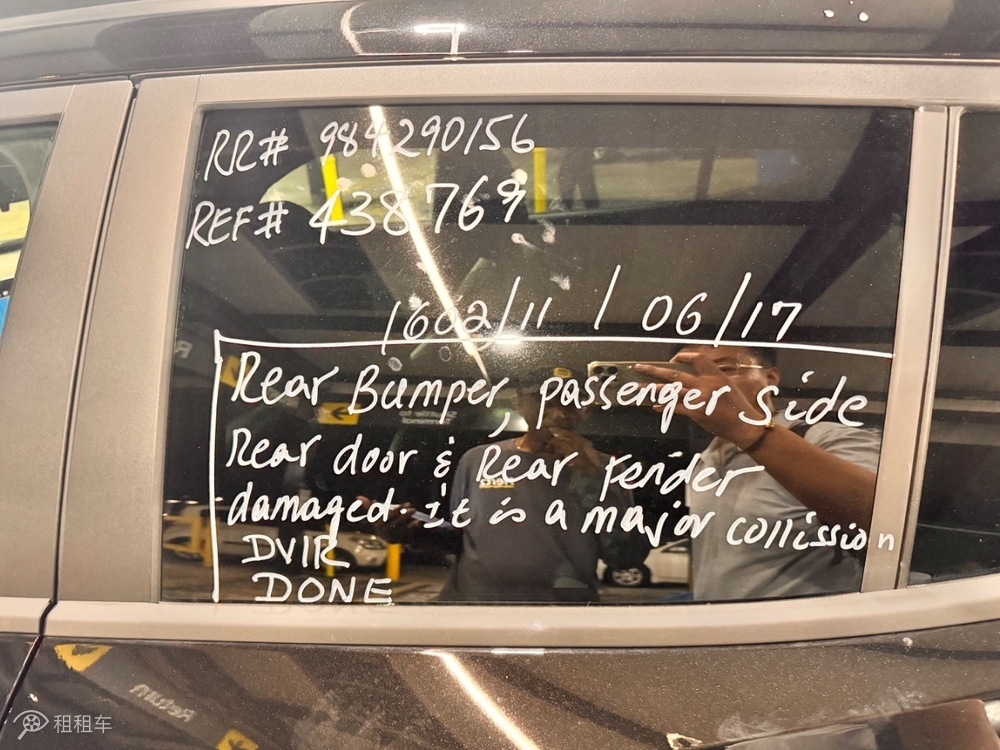 RR# 984290156
REF# 438769
1602/11 / 06/17
Rear Bumper, passenger side
Rear door & Rear fender
damaged. it is a major collission
DVIR
DONE
Return
租租车